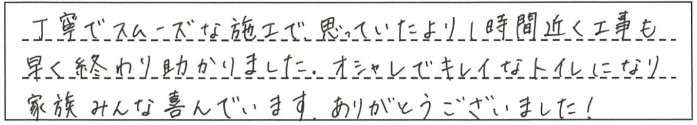 丁寧でスムーズな施工で、思っていたより1時間近く工事も
早く終わり助かりました。オシャレでキレイなトイレになり
家族みんな喜んでいます。ありがとうございました!